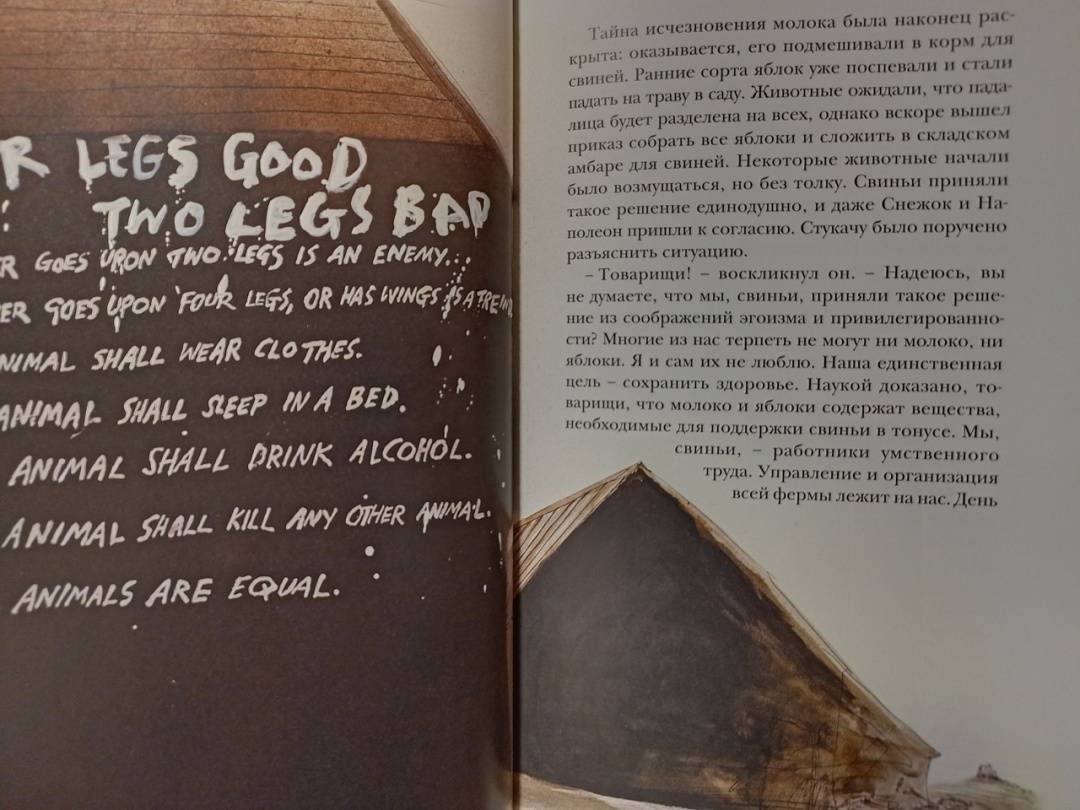 R LEGS GOOD
TWO LEGS BAD
R GOES UPON TWO LEGS IS AN ENEMY.
ER GOES UPON FOUR LEGS, OR HAS WINGS IS A
NIMAL SHALL WEAR CLOTHES.
ANIMAL SHALL SLEEP IN A BED.
ANIMAL SHALL DRINK ALCOHOL.
ANIMAL SHALL KILL ANY OTHER ANIMAL.
ANIMALS ARE EQUAL.
Тайна исчезновения молока была наконец рас-
крыта: оказывается, его подмешивали в корм для
свиней. Ранние сорта яблок уже поспевали и стали
падать на траву в саду. Животные ожидали, что пада-
лица будет разделена на всех, однако вскоре вышел
приказ собрать все яблоки и сложить в складском
амбаре для свиней. Некоторые животные начали
было возмущаться, но без толку. Свиньи приняли
такое решение единодушно, и даже Снежок и На-
полеон пришли к согласию. Стукачу было поручено
разъяснить ситуацию.
– Товарищи! – воскликнул он. – Надеюсь, вы
не думаете, что мы, свиньи, приняли такое реше-
ние из соображений эгоизма и привилегированно-
сти? Многие из нас терпеть не могут ни молоко, ни
яблоки. Я и сам их не люблю. Наша единственная
цель – сохранить здоровье. Наукой доказано, то-
варищи, что молоко и яблоки содержат вещества,
необходимые для поддержки свиньи в тонусе. Мы,
свиньи, – работники умственного
труда. Управление и организация
всей фермы лежит на нас. День